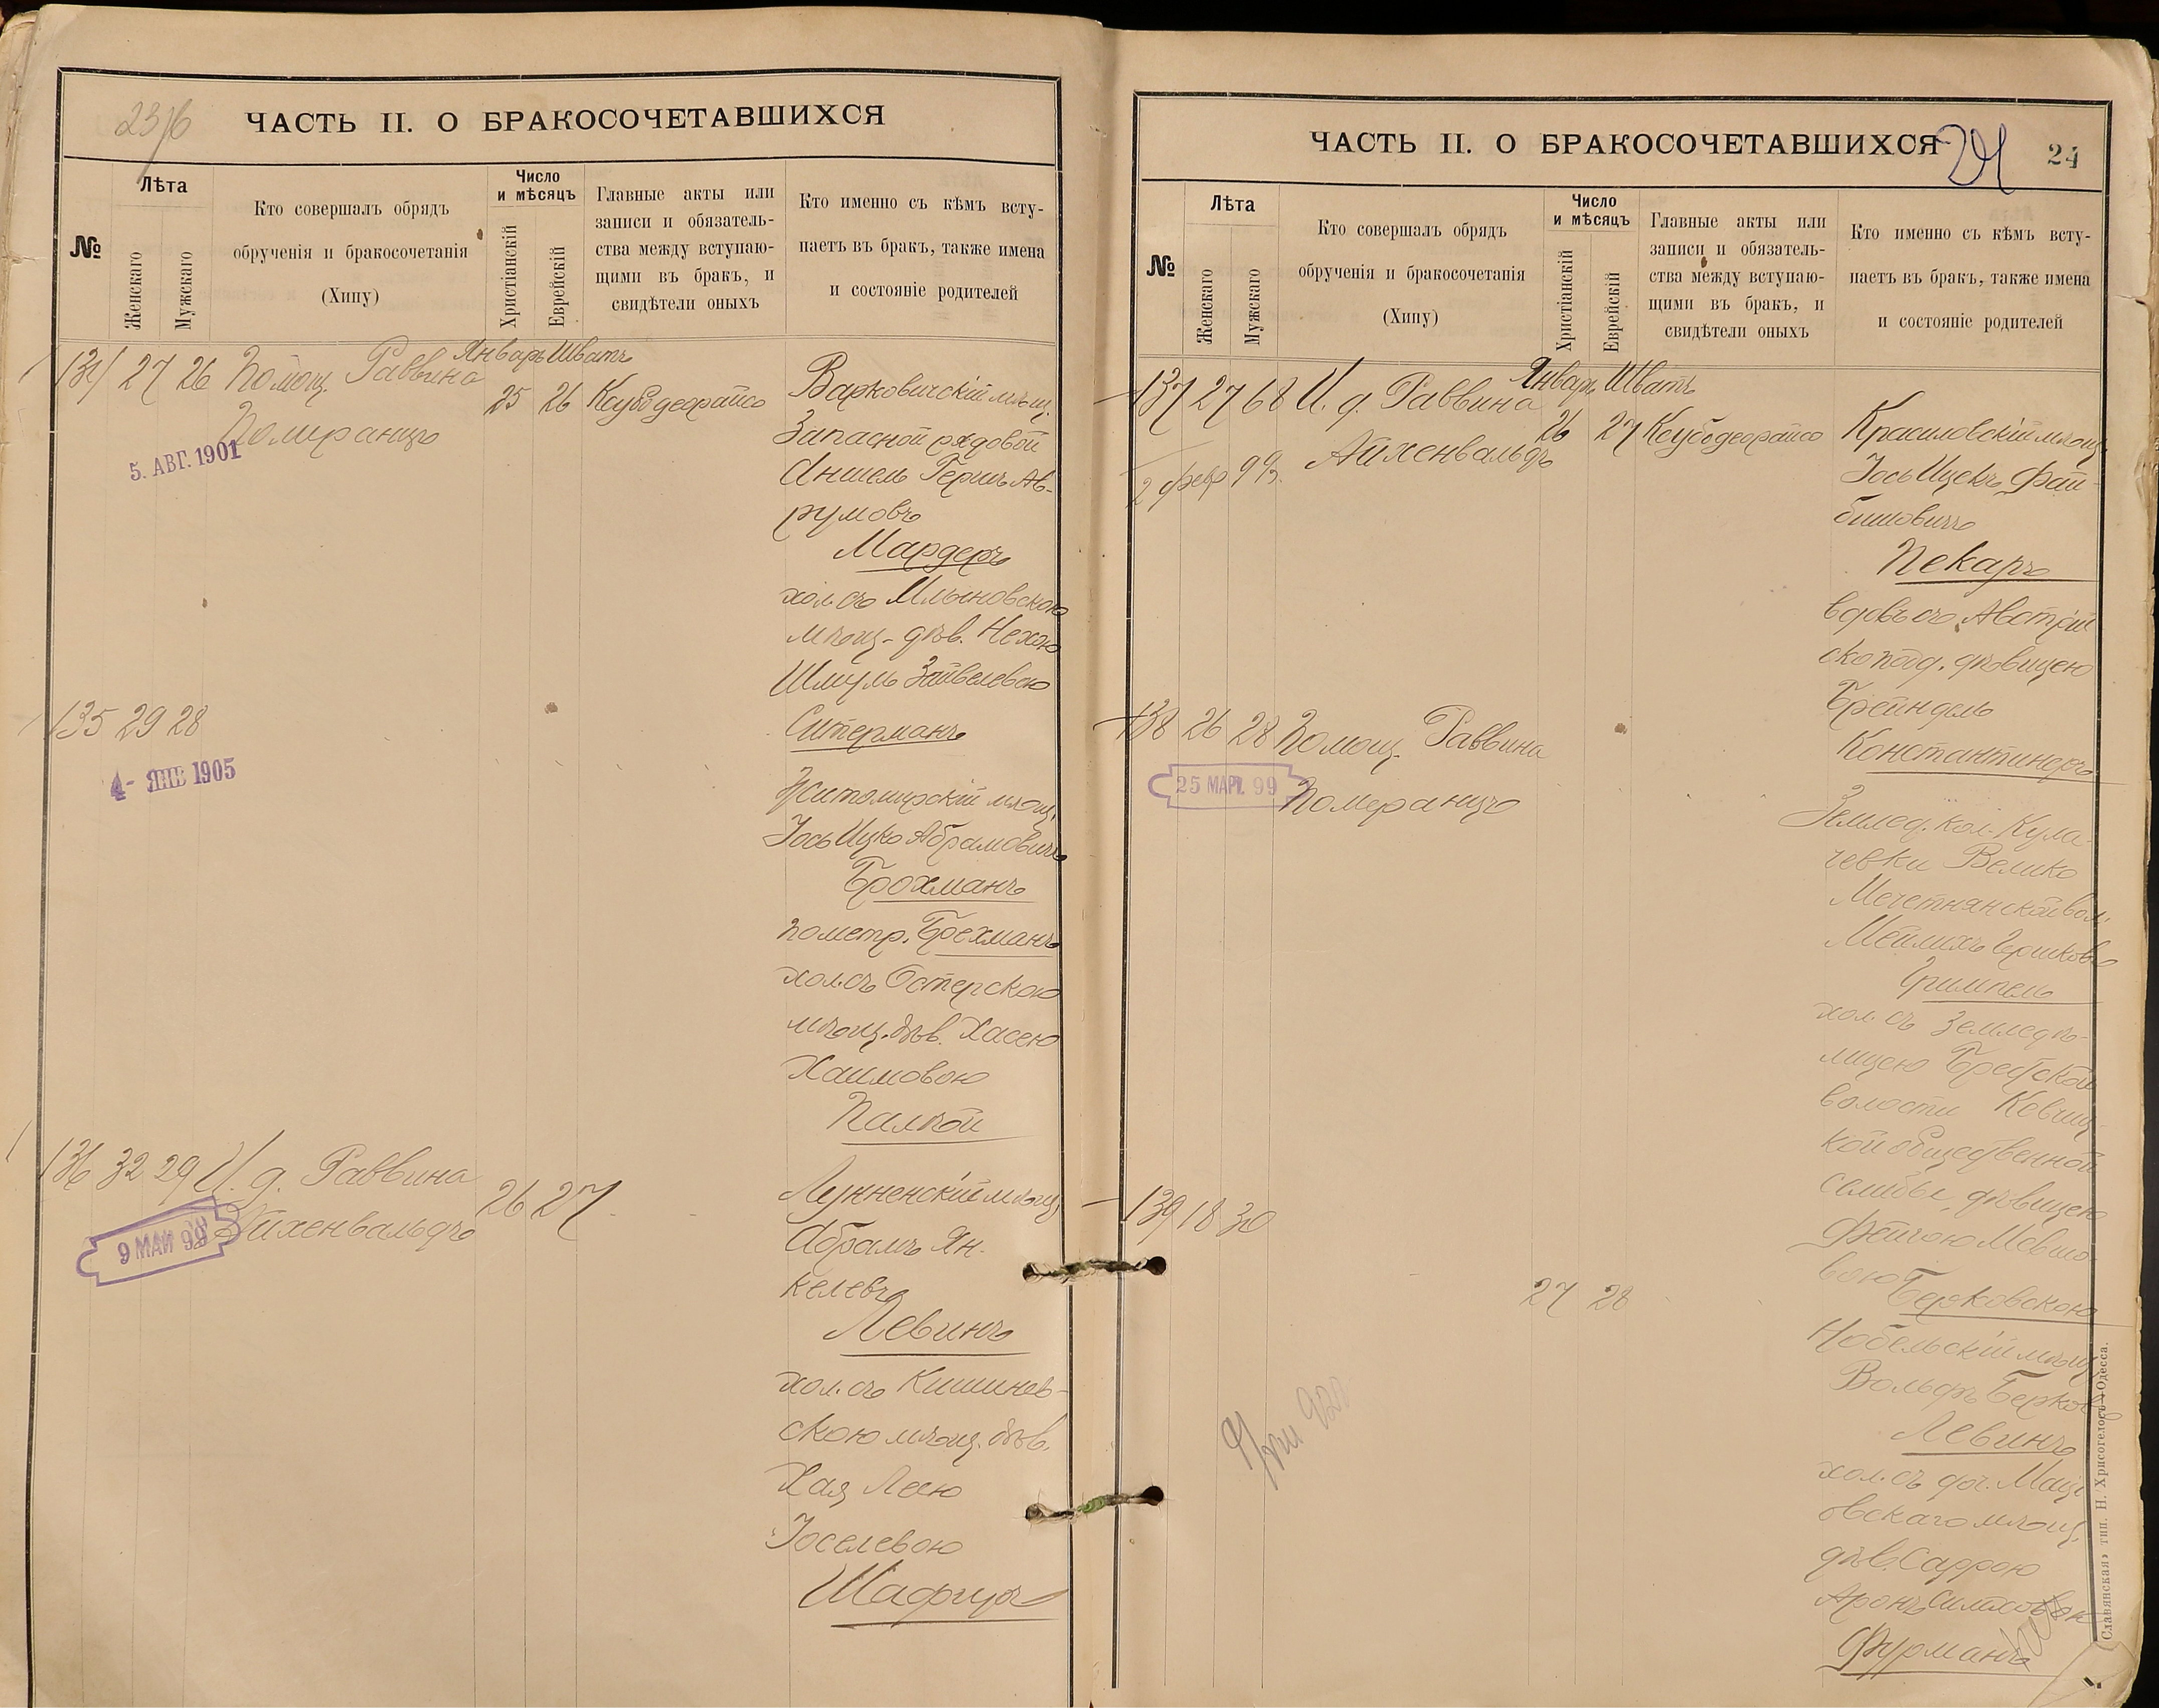 23/6
ЧАСТЬ II. О БРАКОСОЧЕТАВШИХСЯ
№
Лѣта
Женскаго
Мужскаго
Кто совершалъ обрядъ
обрученія и бракосочетанія
(Хипу)
Число
и мѣсяцъ
Христіанскій
Еврейскій
Главные акты или
записи и обязатель-
ства между вступаю-
щими въ бракъ, и
свидѣтели оныхъ
Кто именно съ кѣмъ всту-
паетъ въ бракъ, также имена
и состояніе родителей
134 27 26 Помощ. Раввина
Январь Шватъ
25 26
Померанцъ
5. АВГ. 1901
Варковичскій мѣщ.
Запасной рядовой
Аншель Гершъ Ав-
румовъ
Мардеръ
хол. съ Млыновскою
мѣщ. дѣв. Нехою
Шмуль Зайвелевою
Ситерманъ
135 29 28
4- ЯНВ 1905
Житомирскій мѣщ.
Іось Ицко Абрамовичъ
Брохманъ
по метр. Брехманъ
хол. съ Остерскою
мѣщ. дѣв. Хасею
Хаимовою
Палѣй
136 32 29 И. д. Раввина
26 27
Айхенвальдъ
9 МАЙ 99
Лужненскій мѣщ.
Абрамъ Ян-
келевъ
Левинъ
хол. съ Кишинев-
скою мѣщ. дѣв.
Хая Лею
Іоселевою
Шафиръ
ЧАСТЬ II. О БРАКОСОЧЕТАВШИХСЯ
24
24
№
Лѣта
Женскаго
Мужскаго
Кто совершалъ обрядъ
обрученія и бракосочетанія
(Хипу)
Число
и мѣсяцъ
Христіанскій
Еврейскій
Главные акты или
записи и обязатель-
ства между вступаю-
щими въ бракъ, и
свидѣтели оныхъ
Кто именно съ кѣмъ всту-
паетъ въ бракъ, также имена
и состояніе родителей
137 27 68 И. д. Раввина
Январь Шватъ
26 27
Айхенвальдъ
2 февр 99.
Красиловскій мѣщ.
Іось Ицекъ Фай-
бишовичъ
Пекаръ
вдовъ съ Австрій
ско под. дѣвицею
Брейндель
Константинеръ
138 26 28 Помощ. Раввина
25 МАР. 99
Померанцъ
Землед. кол. Кула-
чевки Велико
Мечетнянской вол.
Мейлихъ Гершковъ
Гримпель
хол. съ земледѣ-
лицею
волости
кой общественной
дѣвицею
Фейгою Мовшо-
вою Берковскою
139 18 30
27 28
Нобельскій мѣщ.
Вольфъ Берков
Левинъ
хол. съ доч. Маці
овскаго мѣщ.
дѣв. Саррою
Фурманъ
Славянская» тип. Н. Хрисогелосъ, Одесса.